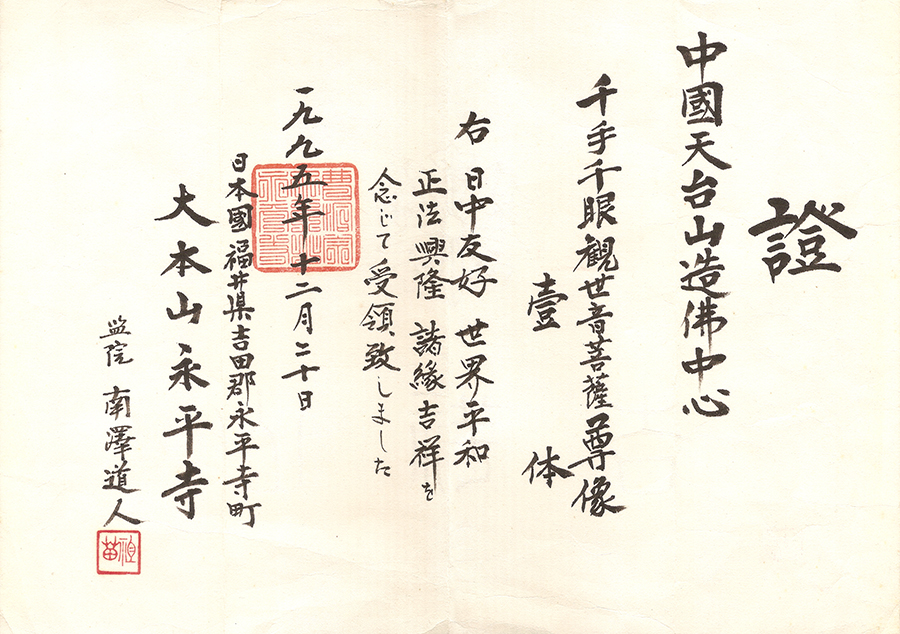 證
中國天台山造佛中心
千手千眼観世音菩薩尊像
壹体
右 日中友好 世界平和
正法興隆 諸縁吉祥を
念じて受領致しました
一九九五年十二月二十日
日本國福井県吉田郡永平寺町
大本山永平寺
监院 南澤道人